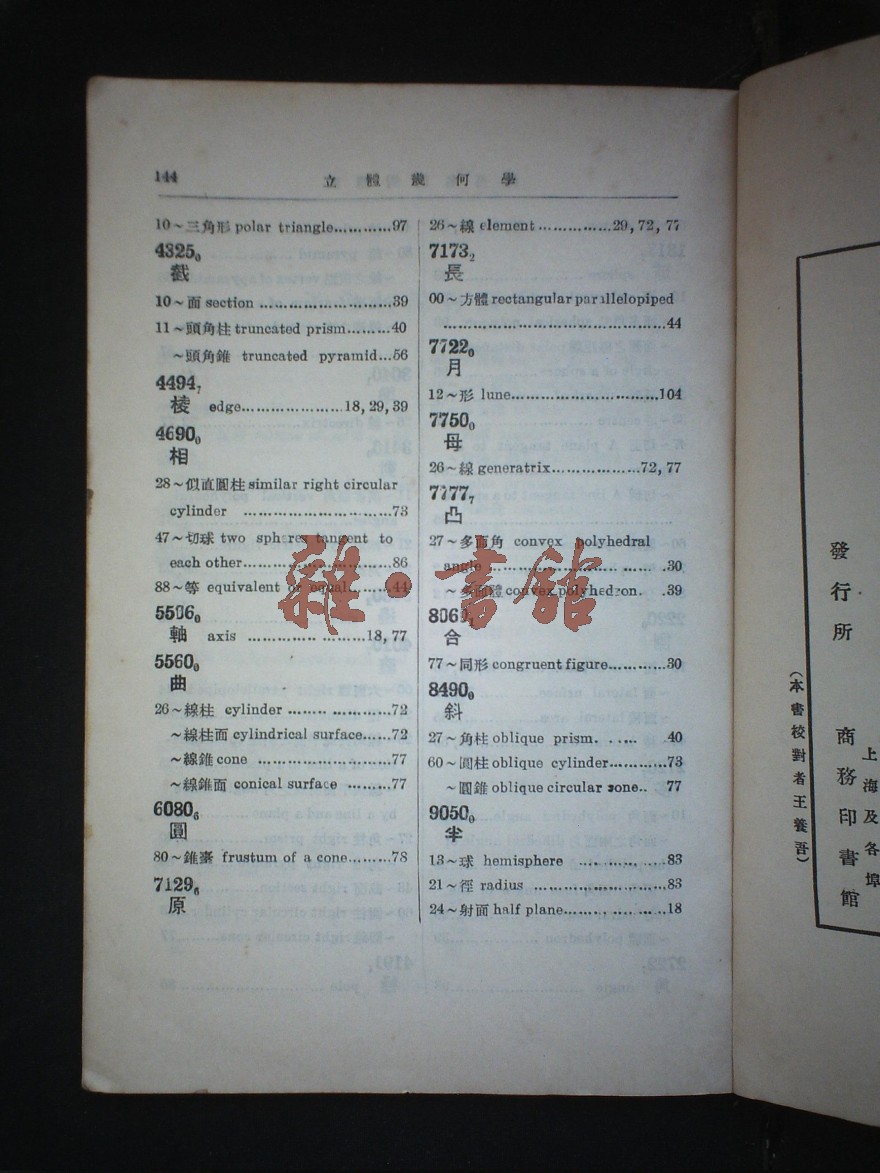 144
立體幾何學
10～三角形 polar triangle............97
4325₀
截
10～面 section ..........................39
11～頭角柱 truncated prism.........40
～頭角錐 truncated pyramid...56
4494₇
棱 edge.....................18, 29, 39
4690₀
相
28～似直圓柱 similar right circular
cylinder ..............................73
47～切球 two spheres tangent to
each other..............................86
88～等 equivalent or equal.........44
5506₀
軸 axis ........................18, 77
5560₀
曲
26～線柱 cylinder .....................72
～線柱面 cylindrical surface......72
～線錐 cone ...........................77
～線錐面 conical surface .........77
6080₆
圓
80～錐臺 frustum of a cone.........78
7129₆
原
26～線 element ...............29, 72, 77
7173₂
長
00～方體 rectangular parallelopiped
.............................................44
7722₀
月
12～形 lune..............................104
7750₀
母
26～線 generatrix..................72, 77
7777₇
凸
27～多面角 convex polyhedral
angle ....................................30
～多面體 convex polyhedron. .39
8060₁
合
77～同形 congruent figure............30
8490₀
斜
27～角柱 oblique prism. .. ... .40
60～圓柱 oblique cylinder............73
～圓錐 oblique circular cone.. 77
9050₀
半
13～球 hemisphere ..................83
21～徑 radius ...........................83
24～射面 half plane.....................18
雜·書館
發行所
上海及各埠
商務印書館
（本書校對者王養吾）